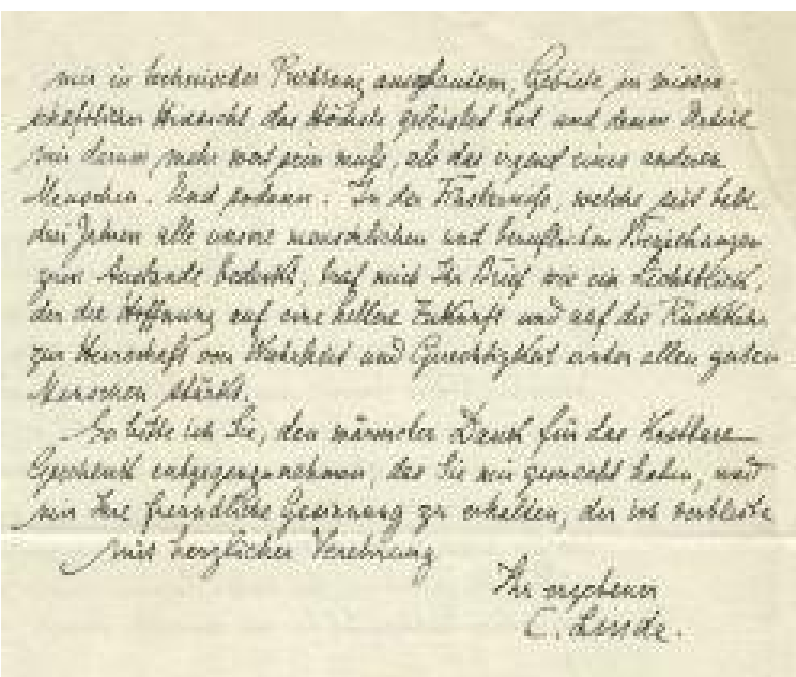 mir in technischer Richtung angebautem, Gebiete in wissen-
schaftlicher Hinsicht das Höchste geleistet hat und dessen Urteil
mir darum mehr wert sein muß, als das irgend eines anderen
Menschen. Und sodann: In der Finsternis, welche seit bald
drei Jahren alle unsere menschlichen und beruflichen Beziehungen
zum Auslande bedeckt, traf mich Ihr Brief wie ein Lichtblick,
der die Hoffnung auf eine hellere Zukunft und auf die Rückkehr
zur Herrschaft von Wahrheit und Gerechtigkeit unter allen guten
Menschen stärkt.
So bitte ich Sie, den wärmsten Dank für das kostbare
Geschenk entgegenzunehmen, das Sie mir gemacht haben, und
mir Ihre freundliche Gesinnung zu erhalten, der ich verbleibe
mit herzlicher Verehrung
Ihr ergebener
C. Linde.